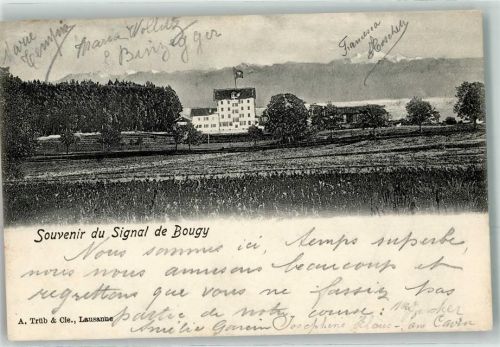 Marie
Maria
E. Binzegger
Francesca
Souvenir du Signal de Bougy
Nous sommes ici, temps superbe,
nous nous amusons beaucoup et
regrettons que vous ne fassiez pas
partie de notre course:
A. Trüb & Cie., Lausanne
Amélie Joséphine